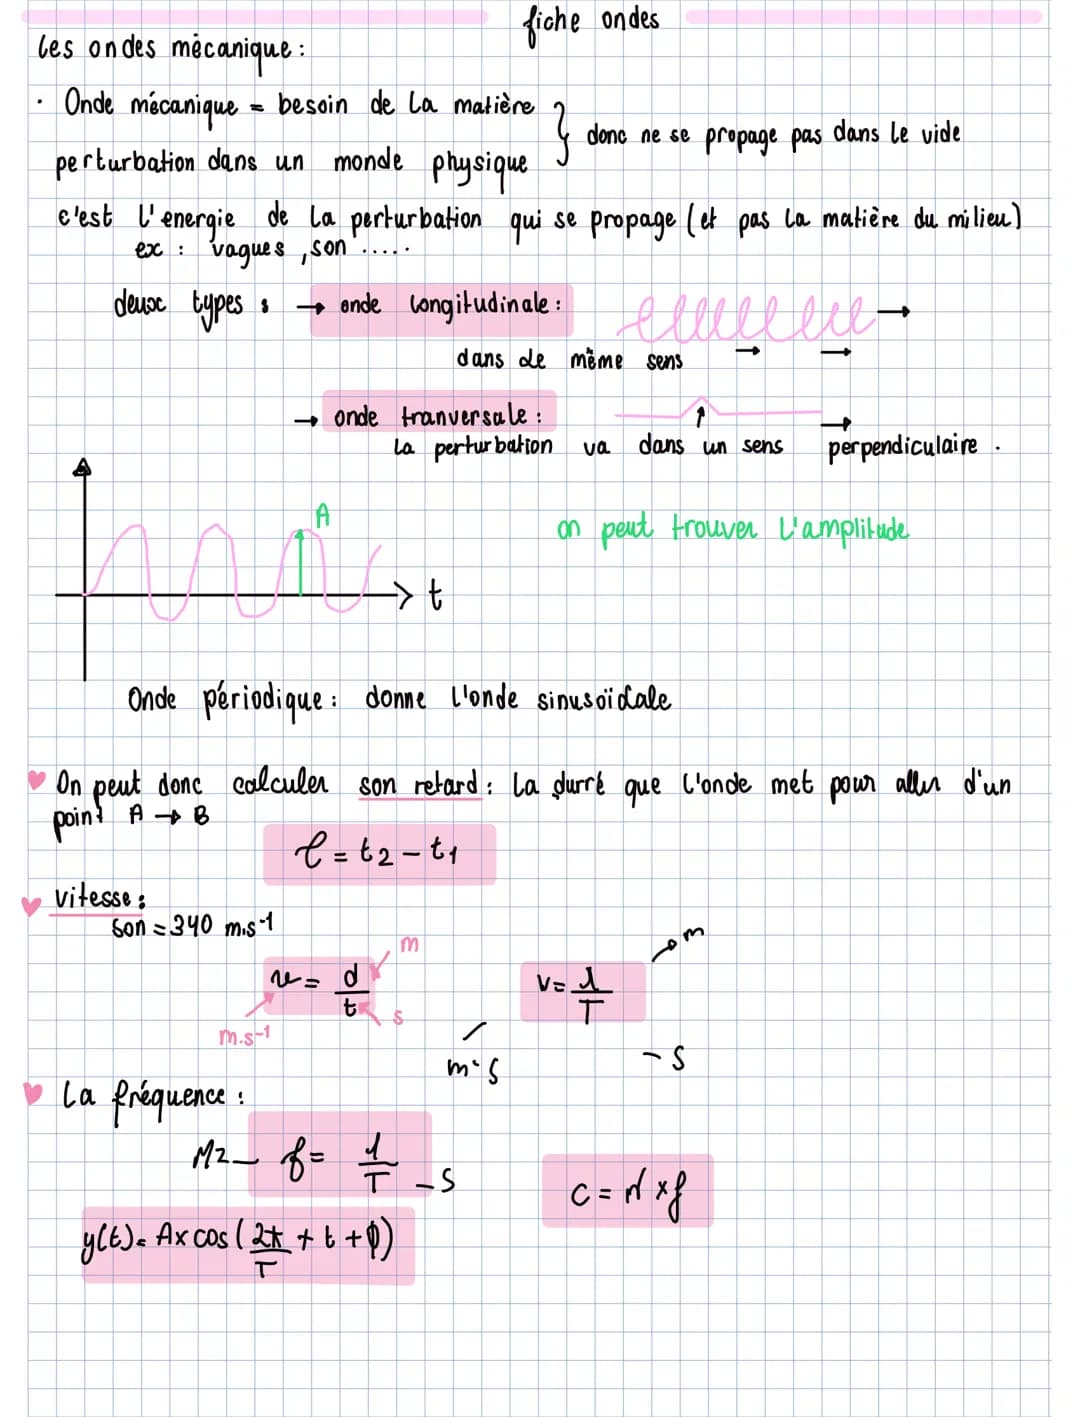 fiche ondes
les ondes mécanique :
· Onde mécanique = besoin de la matière
perturbation dans un monde physique } donc ne se propage pas dans le vide
c'est l'energie de la perturbation qui se propage (et pas la matière du milieu)
ex : vagues , son .....
deux types : → onde longitudinale :
dans le même sens
→ onde tranversale :
la perturbation va dans un sens perpendiculaire .
A
on peut trouver l'amplitude
t
Onde périodique : donne l'onde sinusoïdale
On peut donc calculer son retard : la durré que l'onde met pour aller d'un
point A → B
τ = t2 - t1
vitesse :
son = 340 m.s-1
v = d/t
m
s
m.s-1
v = λ/T
m
m·s
- s
La fréquence :
Hz - f = 1/T - s
c = λ × f
y(t) = A x cos ( 2π/T + t + φ)